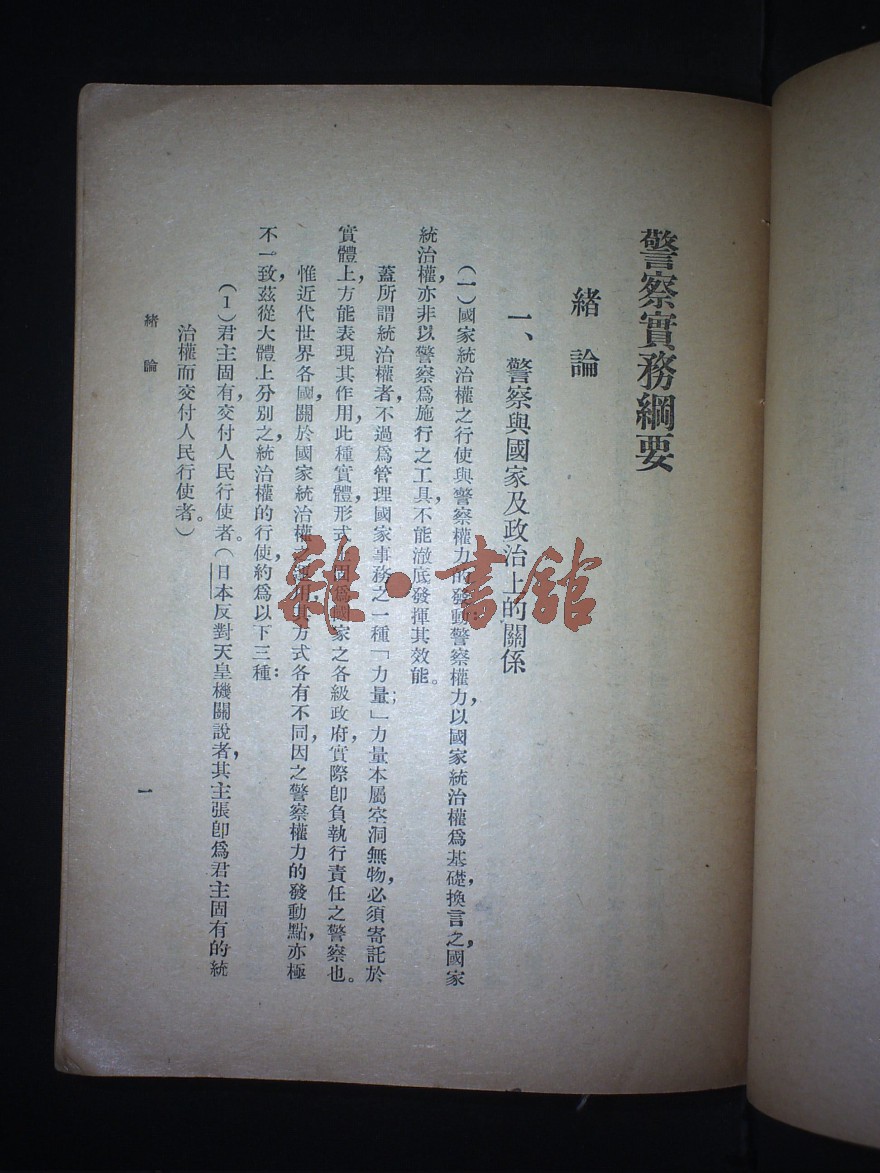 警察實務綱要
緒論
一、警察與國家及政治上的關係
(一)國家統治權之行使與警察權力的發動:警察權力,以國家統治權爲基礎,換言之,國家
統治權,亦非以警察爲施行之工具,不能澈底發揮其效能。
蓋所謂統治權者,不過爲管理國家事務之一種「力量」;力量本屬空洞無物,必須寄託於
實體上,方能表現其作用,此種實體,形式上固爲國家之各級政府,實際卽負執行責任之警察也。
惟近代世界各國,關於國家統治權之運用,其方式各有不同,因之警察權力的發動點,亦極
不一致,茲從大體上分別之,統治權的行使,約爲以下三種:
(1)君主固有,交付人民行使者。(日本反對天皇機關說者,其主張卽爲君主固有的統
治權而交付人民行使者。)
緒論
一
雜·書館